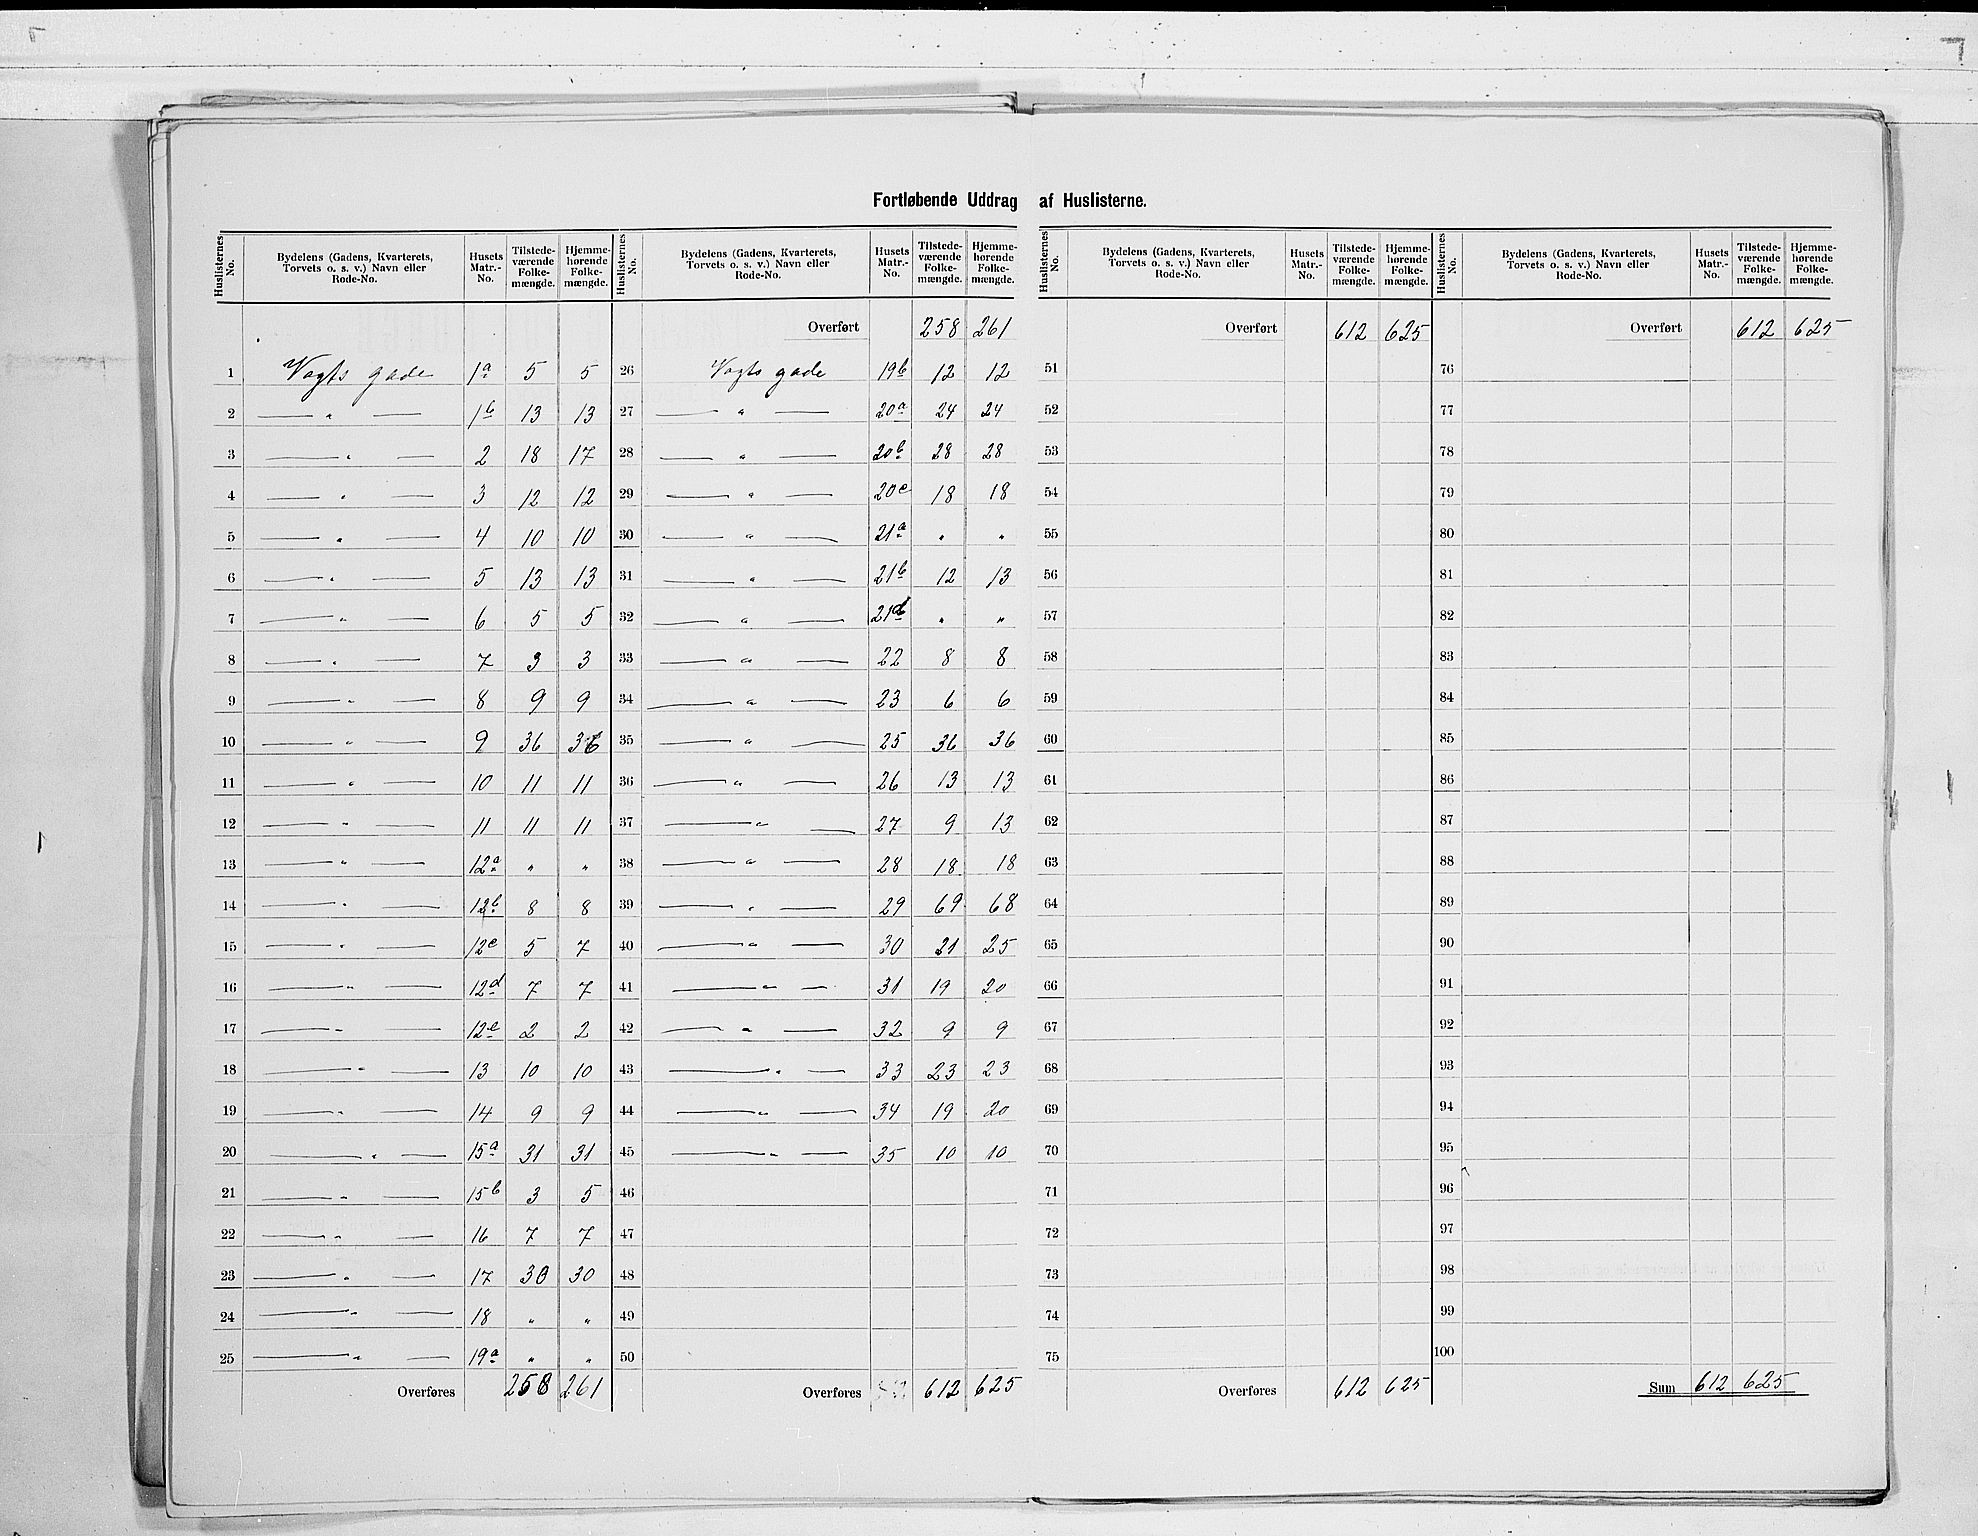 Fortløbende Uddrag af Huslisterne.
Huslisternes No. | Bydelens (Gadens, Kvarterets, Torvets o. s. v.) Navn eller Rode-No. | Husets Matr.-No. | Tilstedeværende Folkemængde. | Hjemmehørende Folkemængde. | Huslisternes No. | Bydelens (Gadens, Kvarterets, Torvets o. s. v.) Navn eller Rode-No. | Husets Matr.-No. | Tilstedeværende Folkemængde. | Hjemmehørende Folkemængde. | Huslisternes No. | Bydelens (Gadens, Kvarterets, Torvets o. s. v.) Navn eller Rode-No. | Husets Matr.-No. | Tilstedeværende Folkemængde. | Hjemmehørende Folkemængde. | Huslisternes No. | Bydelens (Gadens, Kvarterets, Torvets o. s. v.) Navn eller Rode-No. | Husets Matr.-No. | Tilstedeværende Folkemængde. | Hjemmehørende Folkemængde.
Overført 258 261 Overført 612 625 Overført 612 625
1 Vogts gade 1a 5 5 26 Vogts gade 19b 12 12 51 76
2 — " — 1b 13 13 27 — " — 20a 24 24 52 77
3 — " — 2 18 17 28 — " — 20b 28 28 53 78
4 — " — 3 12 12 29 — " — 20c 18 18 54 79
5 — " — 4 10 10 30 — " — 21a " " 55 80
6 — " — 5 13 13 31 — " — 21b 12 13 56 81
7 — " — 6 5 5 32 — " — 21d " " 57 82
8 — " — 7 3 3 33 — " — 22 8 8 58 83
9 — " — 8 9 9 34 — " — 23 6 6 59 84
10 — " — 9 36 36 35 — " — 25 36 36 60 85
11 — " — 10 11 11 36 — " — 26 13 13 61 86
12 — " — 11 11 11 37 — " — 27 9 13 62 87
13 — " — 12a " " 38 — " — 28 18 18 63 88
14 — " — 12b 8 8 39 — " — 29 69 68 64 89
15 — " — 12c 5 7 40 — " — 30 21 25 65 90
16 — " — 12d 7 7 41 — " — 31 19 20 66 91
17 — " — 12e 2 2 42 — " — 32 9 9 67 92
18 — " — 13 10 10 43 — " — 33 23 23 68 93
19 — " — 14 9 9 44 — " — 34 19 20 69 94
20 — " — 15a 31 31 45 — " — 35 10 10 70 95
21 — " — 15b 3 5 46 71 96
22 — " — 16 7 7 47 72 97
23 — " — 17 30 30 48 73 98
24 — " — 18 " " 49 74 99
25 — " — 19a " " 50 75 100
Overføres 258 261 Overføres 612 625 Overføres 612 625 Sum 612 625